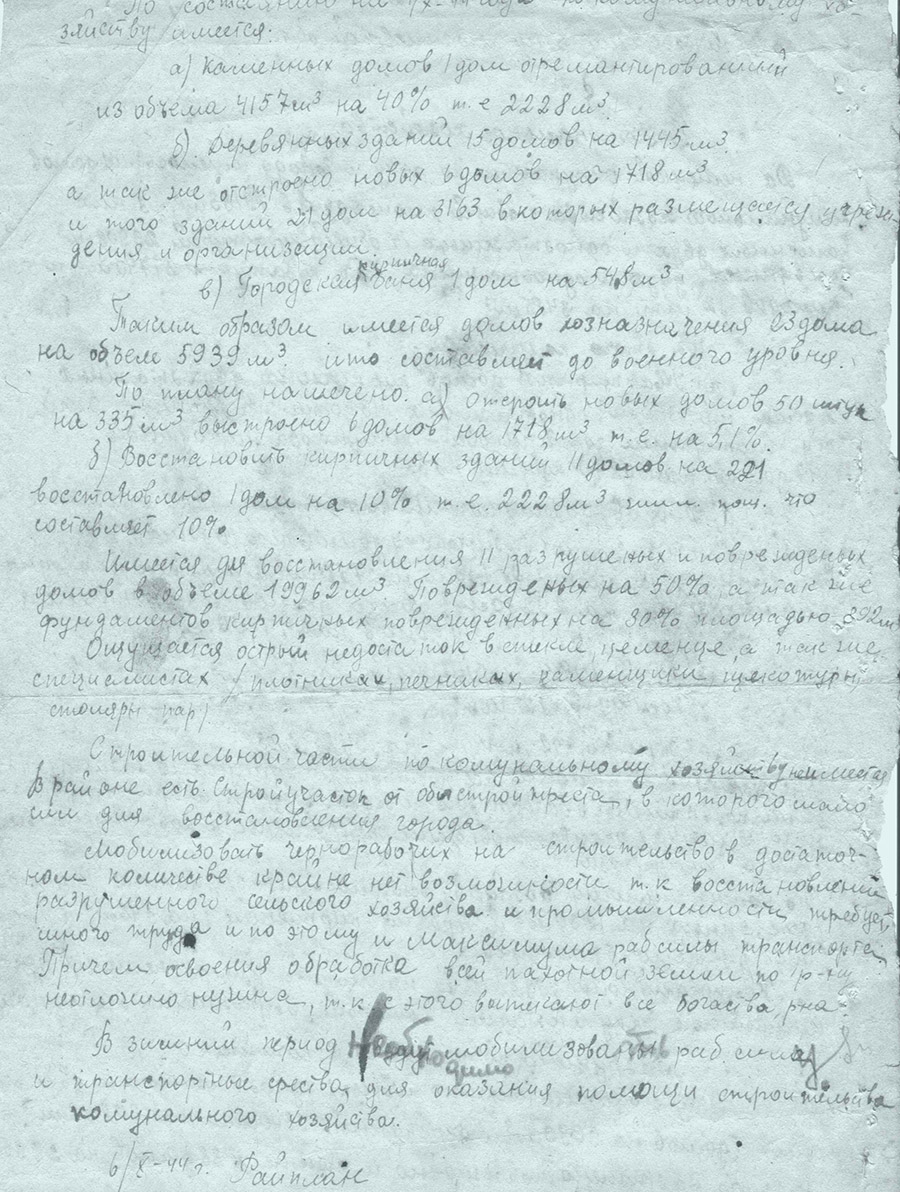 По состоянию на 1/X-44 года по комунальному хо-
зяйству имеется:
а) Каменных домов 1 дом отремантированний
из объёма 4157 м³ на 40% т.е 2228 м³
б) Деревянных зданий 15 домов на 1445 м³
а так же отстроено новых 6 домов на 1718 м³
и того зданий 21 дом на 3163 в которых размещаются учреж-
дения и организации
кирпичная
в) Городская баня 1 дом на 548 м³
Таким образом имеется домов хозназначения 23 дома
на объеме 5939 м³ что составляет до военного уровня.
По плану намечено. а) отстроить новых домов 50 штук
на 335 м³ выстроено 6 домов на 1718 м³ т.е. на 5,1%.
б) Восстановить кирпичных зданий 11 домов на 221
восстановлено 1 дом на 10% т.е. 2228 м³ жил. пощ. что
составляет 10%
Имеется для восстановления 11 разрушеных и поврежденых
домов в объёме 19962 м³. Поврежденых на 50%, а так же
фундаментов кирпичных поврежденных на 80% площадью 892 м
Ощущается острый недостаток в стекле, цементе, а так же
специалистах /плотниках, печниках, каменщики щекотуры
столяры
Строительной части по комунальному хозяйству неимеется
В районе есть Стройучасток от облстройтреста, в которого мало
сил для восстановления города.
Мобилизовать чернорабочих на строительство в достаточ-
ном количестве крайне нет возможности т.к восстановлений
разрушенного сельского хозяйства и промышленности требует
много труда и по этому и максимума рабсилы транспорта
Причем освоения обработка всей пахотной земли по р-ну
неотложно нужна, т.к с этого вытекают все богаства р-на.
В зимний период Необходимо мобилизовать раб. силу
и транспортные средства для оказания помощи строительства
комунального хозяйства.
6/X-44 г. Райплан